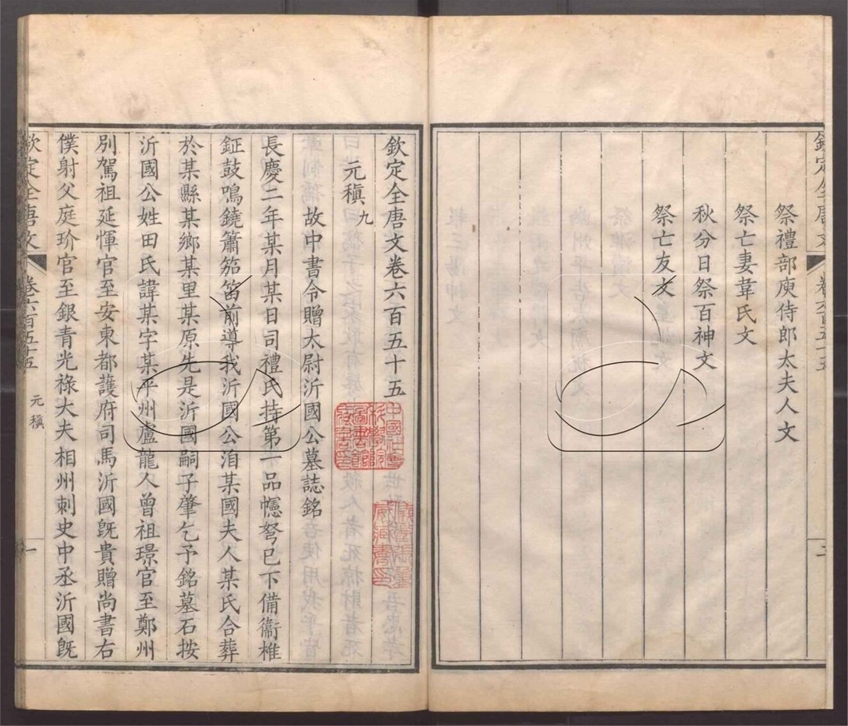 欽定全唐文 卷六百五十五 二
祭禮部庾侍郎太夫人文
祭亡妻韋氏文
秋分日祭百神文
祭亡友文
欽定全唐文卷六百五十五
元稹九
故中書令贈太尉沂國公墓誌銘
長慶二年某月某日司禮氏持第一品幰弩已下備衞椎
鉦鼓鳴鐃簫笳笛前導我沂國公洎某國夫人某氏合葬
於某縣某鄉某里某原先是沂國嗣子肇乞予銘墓石按
沂國公姓田氏諱某字某平州盧龍人曾祖璟官至鄭州
別駕祖延惲官至安東都護府司馬沂國旣貴贈尚書右
僕射父庭玠官至銀青光祿大夫相州刺史中丞沂國旣
欽定全唐文 卷六百五十五 元稹 一